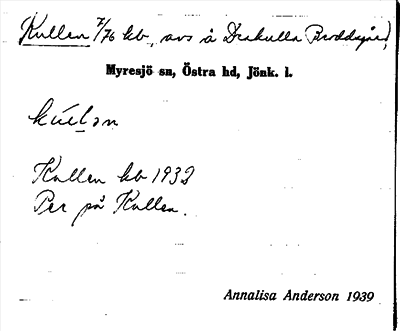 Kullen 7/76 kb, avs å Drakulla Broddgård,
Myresjö sn, Östra hd, Jönk. l.
kúlən
Kullen kb 1932
Per på Kullen.
Annalisa Anderson 1939